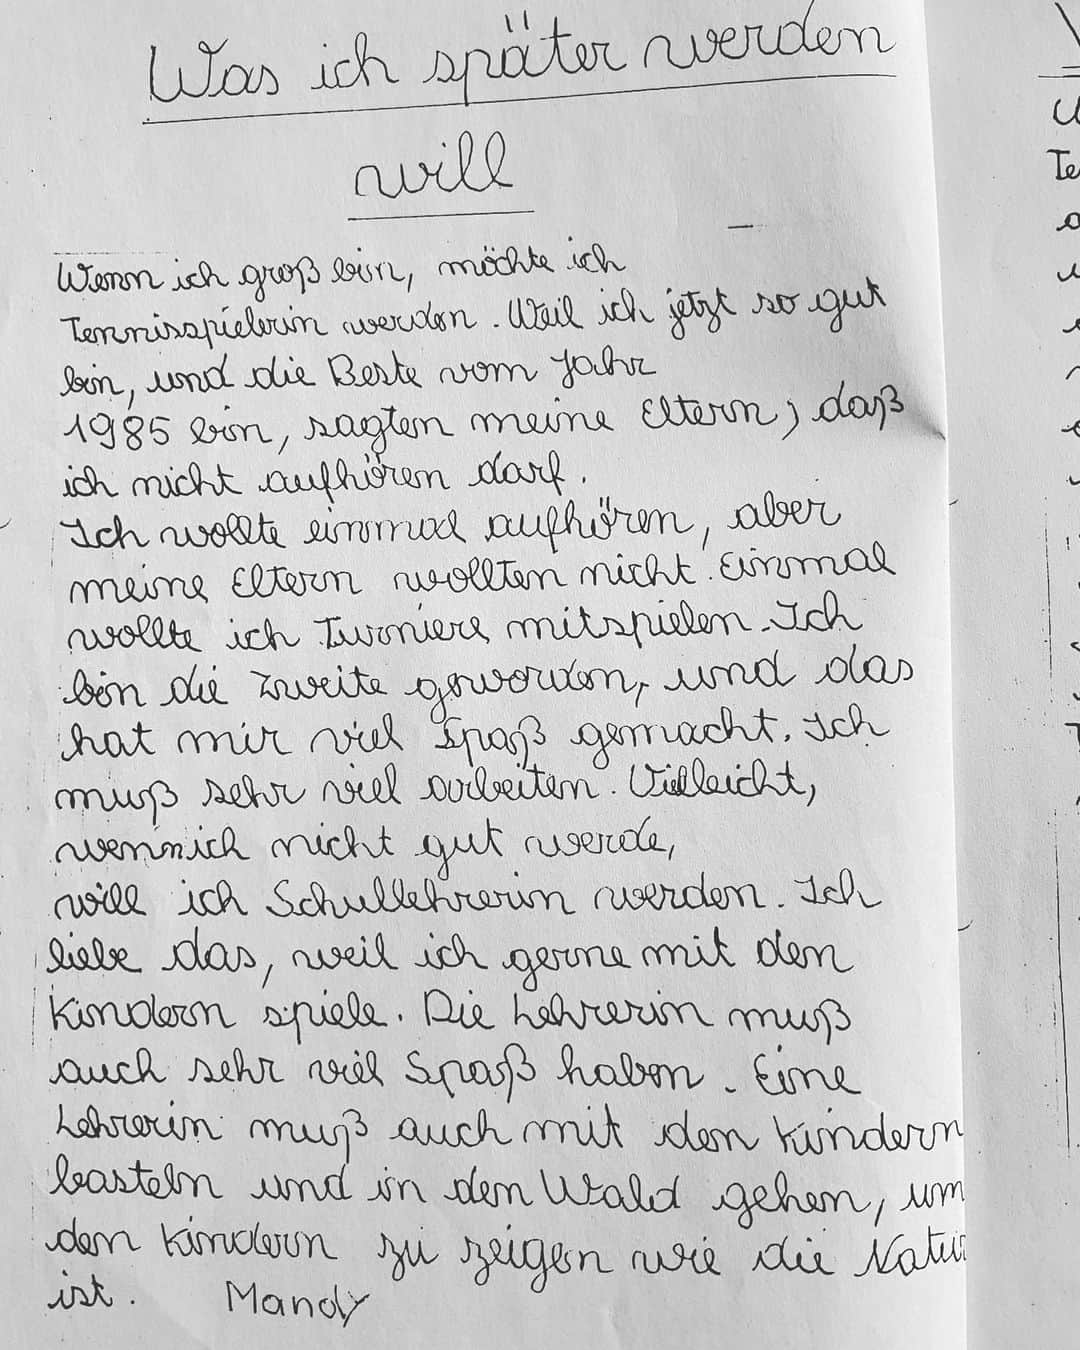 Was ich später werden
will
Wenn ich groß bin, möchte ich
Tennisspielerin werden. Weil ich jetzt so gut
bin, und die Beste vom Jahr
1985 bin, sagten meine Eltern, daß
ich nicht aufhören darf.
Ich wollte einmal aufhören, aber
meine Eltern wollten nicht. Einmal
wollte ich Turniere mitspielen. Ich
bin die Zweite geworden, und das
hat mir viel Spaß gemacht. Ich
muß sehr viel arbeiten. Vielleicht,
wenn ich nicht gut werde,
will ich Schullehrerin werden. Ich
liebe das, weil ich gerne mit den
Kindern spiele. Die Lehrerin muß
auch sehr viel Spaß haben. Eine
Lehrerin muß auch mit den Kindern
basteln und in den Wald gehen, um
den Kindern zu zeigen wie die Natur
ist. Mandy